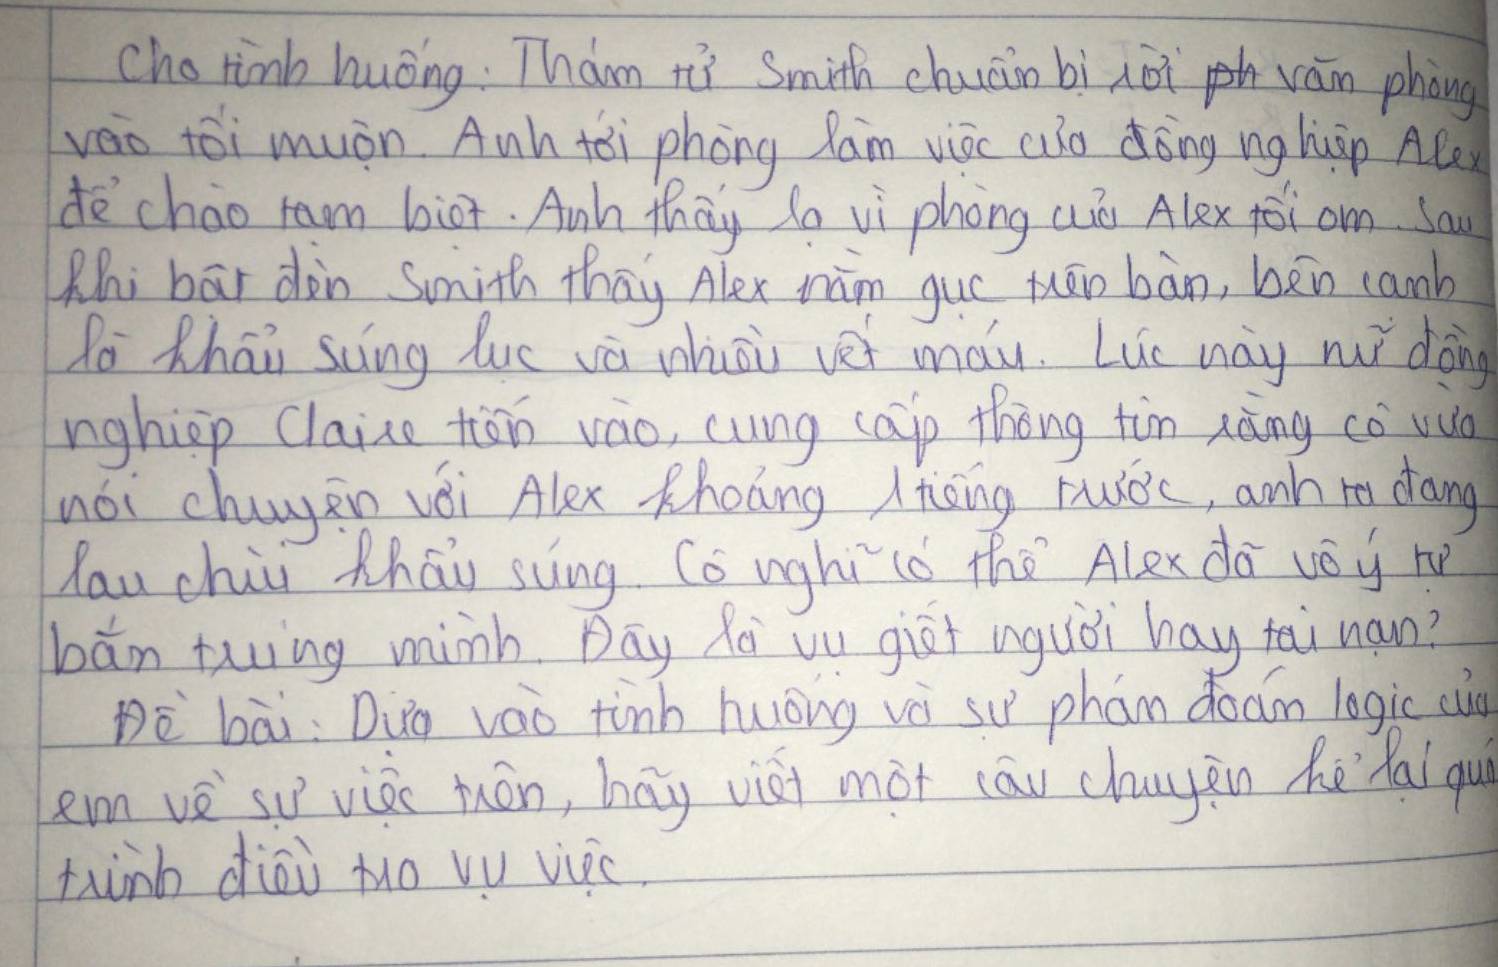 Cho tình huống: Thám tử Smith chuẩn bị rời văn phòng
vào tối muộn. Anh tới phòng làm việc của đồng nghiệp Alex
để chào tạm biệt. Anh thấy lạ vì phòng của Alex tối om. Sau
khi bật đèn Smith thấy Alex nằm gục trên bàn, bên cạnh
là khẩu súng lục và nhiều vết máu. Lúc này nữ đồng
nghiệp Claire tiến vào, cung cấp thông tin rằng cô vừa
nói chuyện với Alex khoảng 1 tiếng trước, anh ta đang
lau chùi khẩu súng. Cô nghĩ có thể Alex đã vô ý tự
bắn trúng mình. Đây là vụ giết người hay tai nạn?
Đề bài: Dựa vào tình huống và sự phán đoán logic của
em về sự việc trên, hãy viết một câu chuyện kể lại quá
trình điều tra vụ việc.